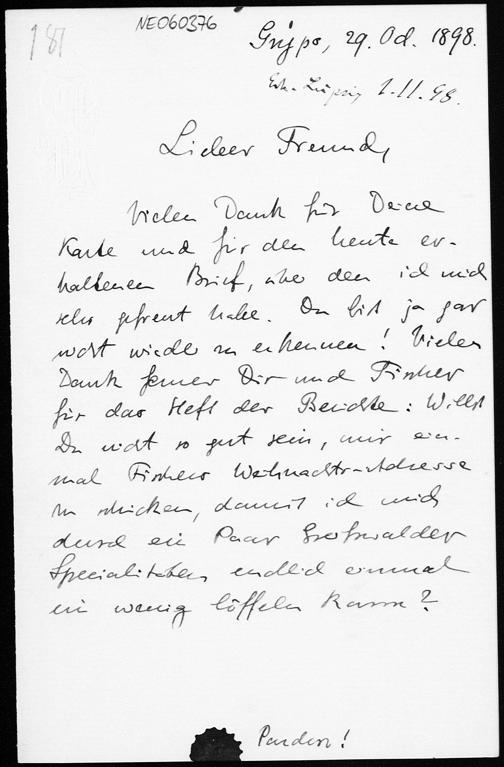 181
NE060376
Grypo, 29. Oct. 1898.
Erh. Leipzig 1.11.98.
Lieber Freund,
Vielen Dank für Deine
Karte und für den heute er-
haltenen Brief, über den ich mich
sehr gefreut habe. Du bist ja gar
nicht wieder zu erkennen! Vielen
Dank ferner Dir und Fischer
für das Heft der Berichte: Willst
Du nicht so gut sein, mir ein-
mal Fischers Weihnachts-Adresse
zu schicken, damit ich mich
durch ein Paar Greifswalder
Specialitäten endlich einmal
ein wenig löffeln kann?